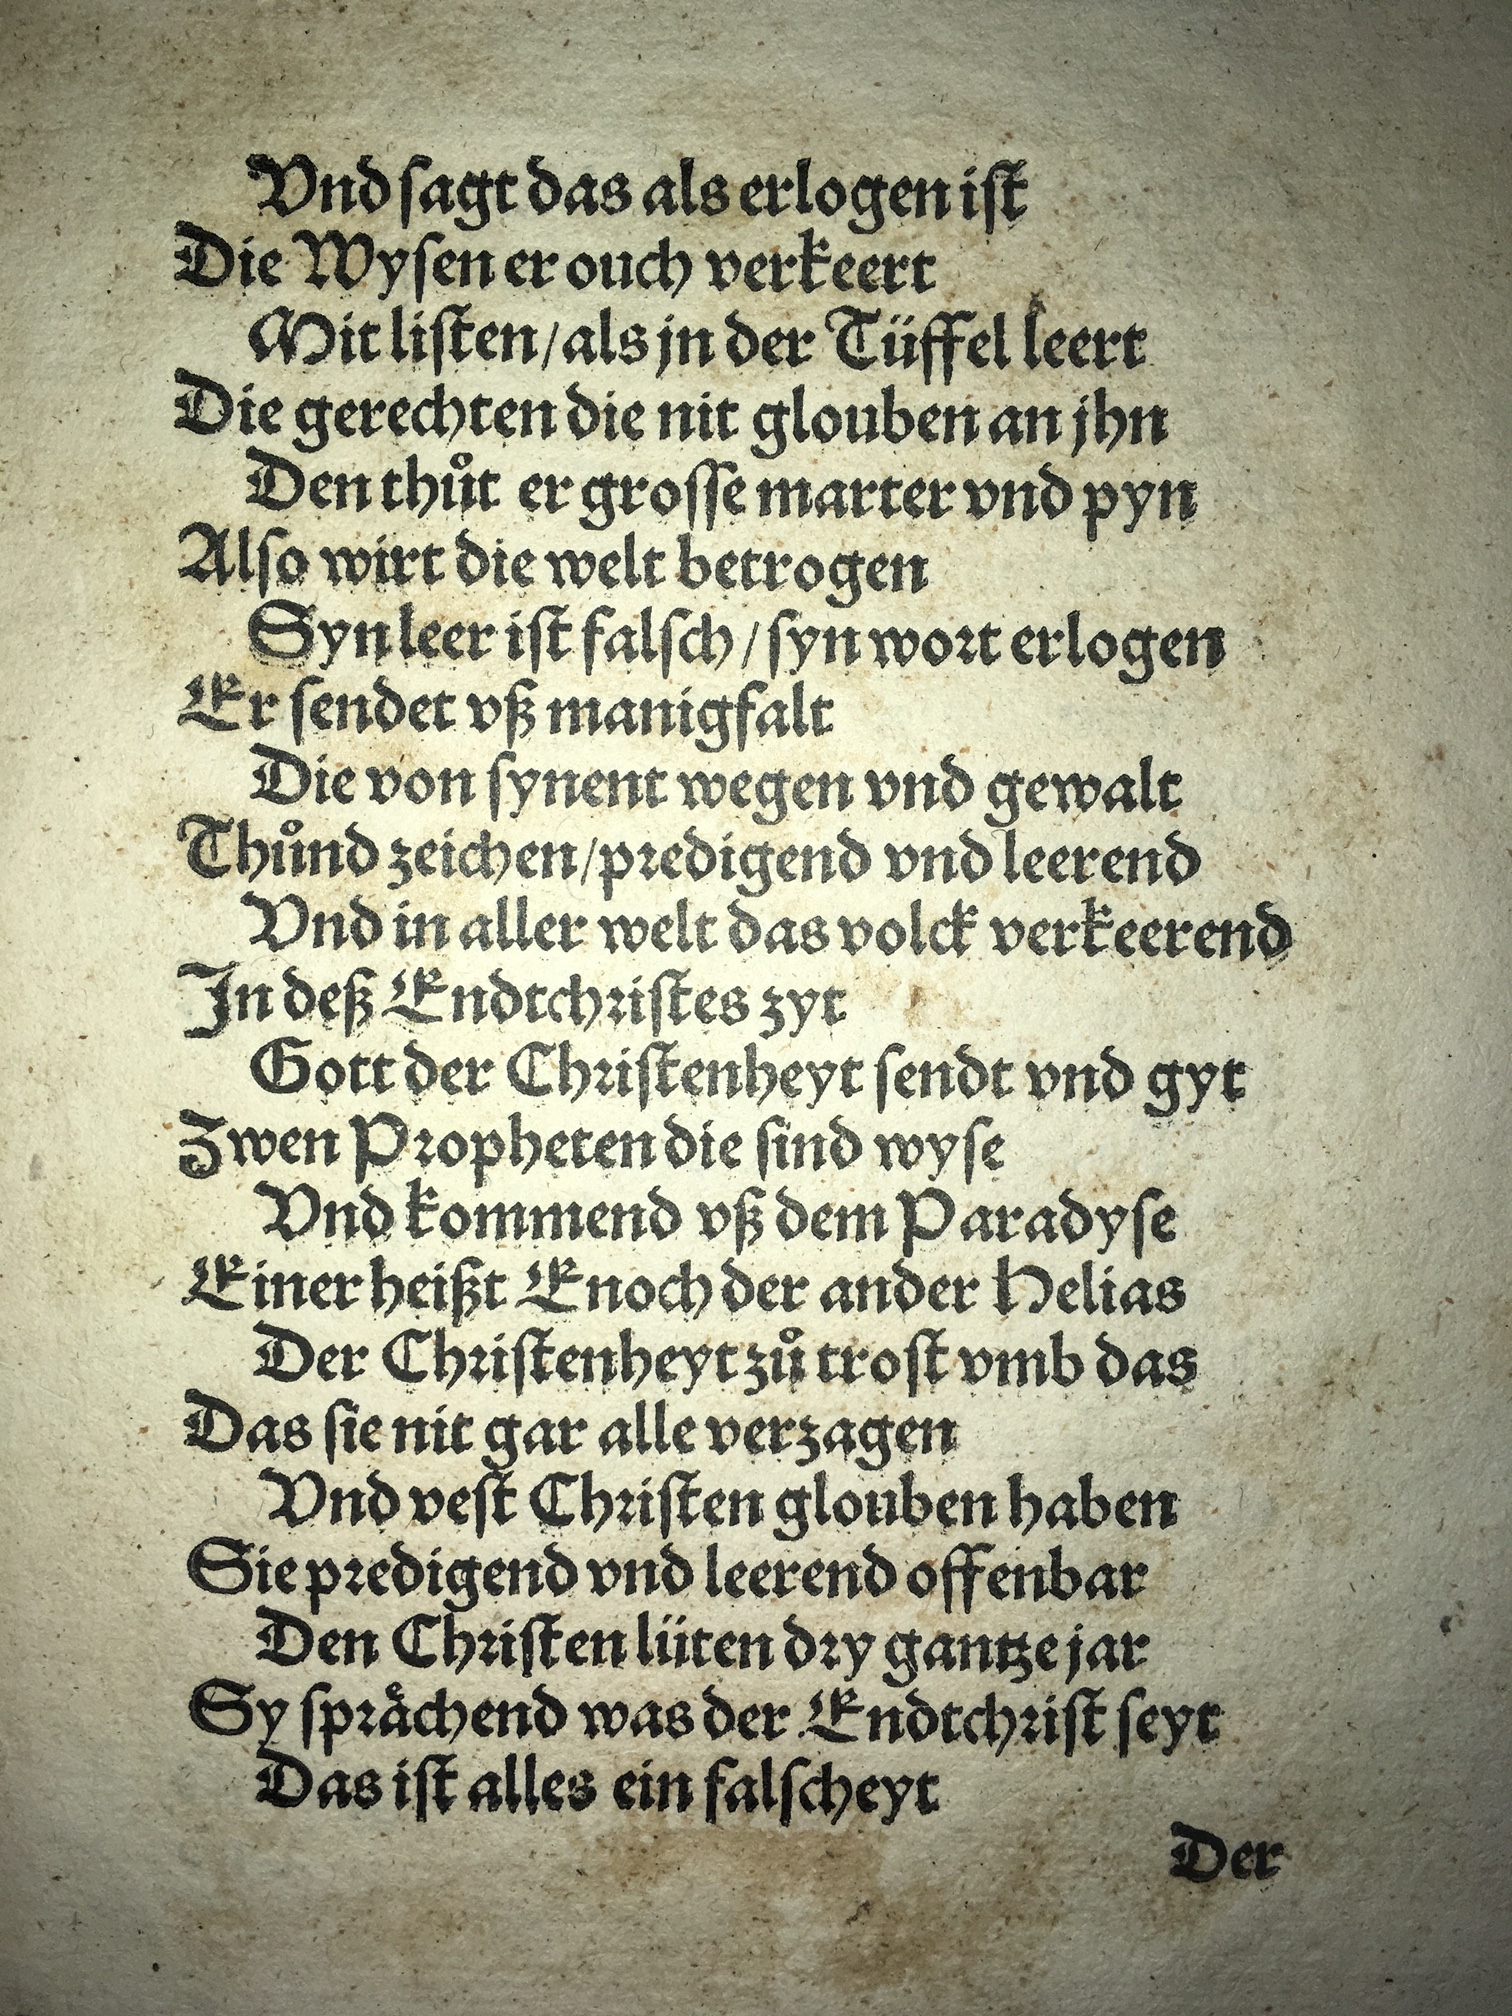 Vnd sagt das als erlogen ist
Die Wysen er ouch verkeert
Mit listen/als jn der Tüffel leert
Die gerechten die nit glouben an jhn
Den thůt er grosse marter vnd pyn
Also wirt die welt betrogen
Syn leer ist falsch/syn wort erlogen
Er sendet vß manigfalt
Die von synent wegen vnd gewalt
Thůnd zeichen/predigend vnd leerend
Vnd in aller welt das volck verkeerend
In deß Endtchristes zyt
Gott der Christenheyt sendt vnd gyt
Zwen Propheten die sind wyse
Vnd kommend vß dem Paradyse
Einer heißt Enoch der ander Helias
Der Christenheyt zů trost vmb das
Das sie nit gar alle verzagen
Vnd vest Christen glouben haben
Sie predigend vnd leerend offenbar
Den Christen lüten dry gantze jar
Sy spraͤchend was der Endtchrist seyt
Das ist alles ein falscheyt
Der